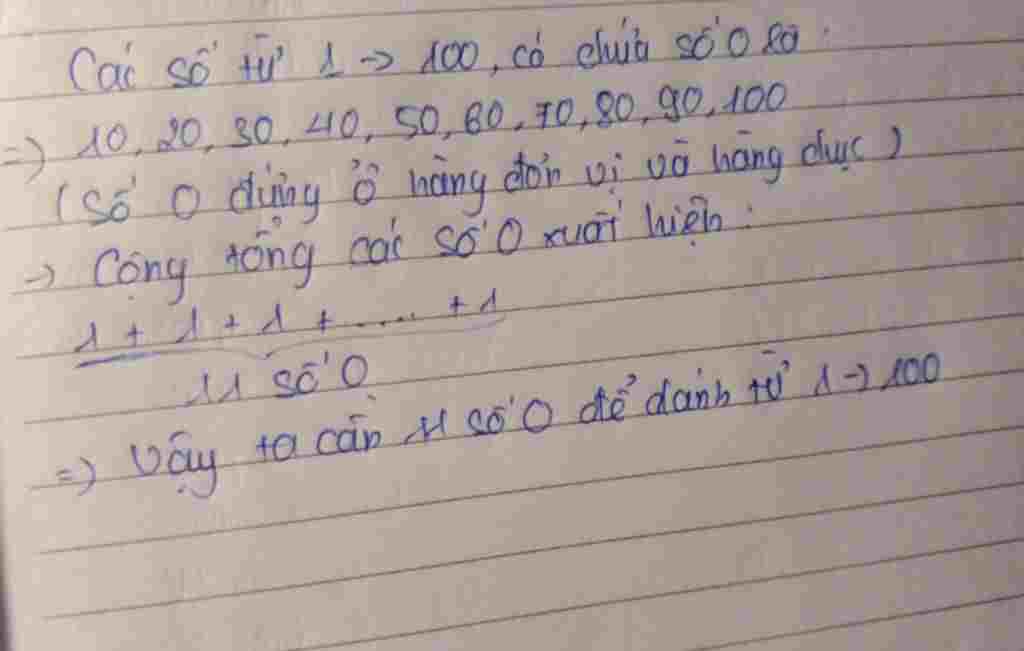 Các số từ 1 -> 100, có chứa số 0 là:
=) 10, 20, 30, 40, 50, 60, 70, 80, 90, 100
(Số 0 đứng ở hàng đơn vị và hàng chục)
-> Cộng tổng các số 0 xuất hiện:
1 + 1 + 1 + ..... + 1
11 số 0
=) Vậy ta cần 11 số 0 để đánh từ 1 -> 100